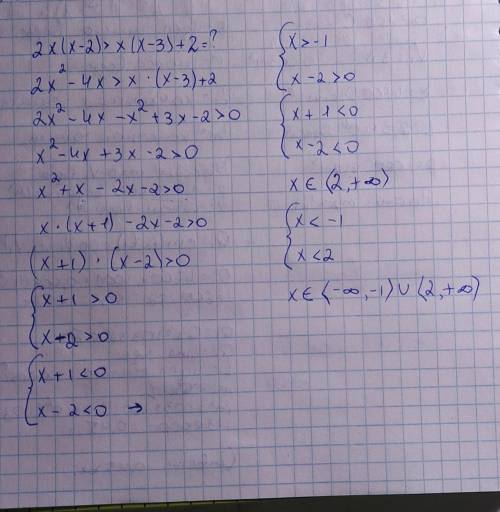 2x(x-2)>x(x-3)+2=?
2x²-4x>x·(x-3)+2
2x²-4x-x²+3x-2>0
x²-4x+3x-2>0
x²+x-2x-2>0
x·(x+1)-2x-2>0
(x+1)·(x-2)>0
{x+1>0
x+2>0
{x+1<0
x-2<0 →
{x>-1
x-2>0
{x+1<0
x-2<0
x∈⟨2,+∞)
{x<-1
x<2
x∈⟨-∞,-1)∪⟨2,+∞)